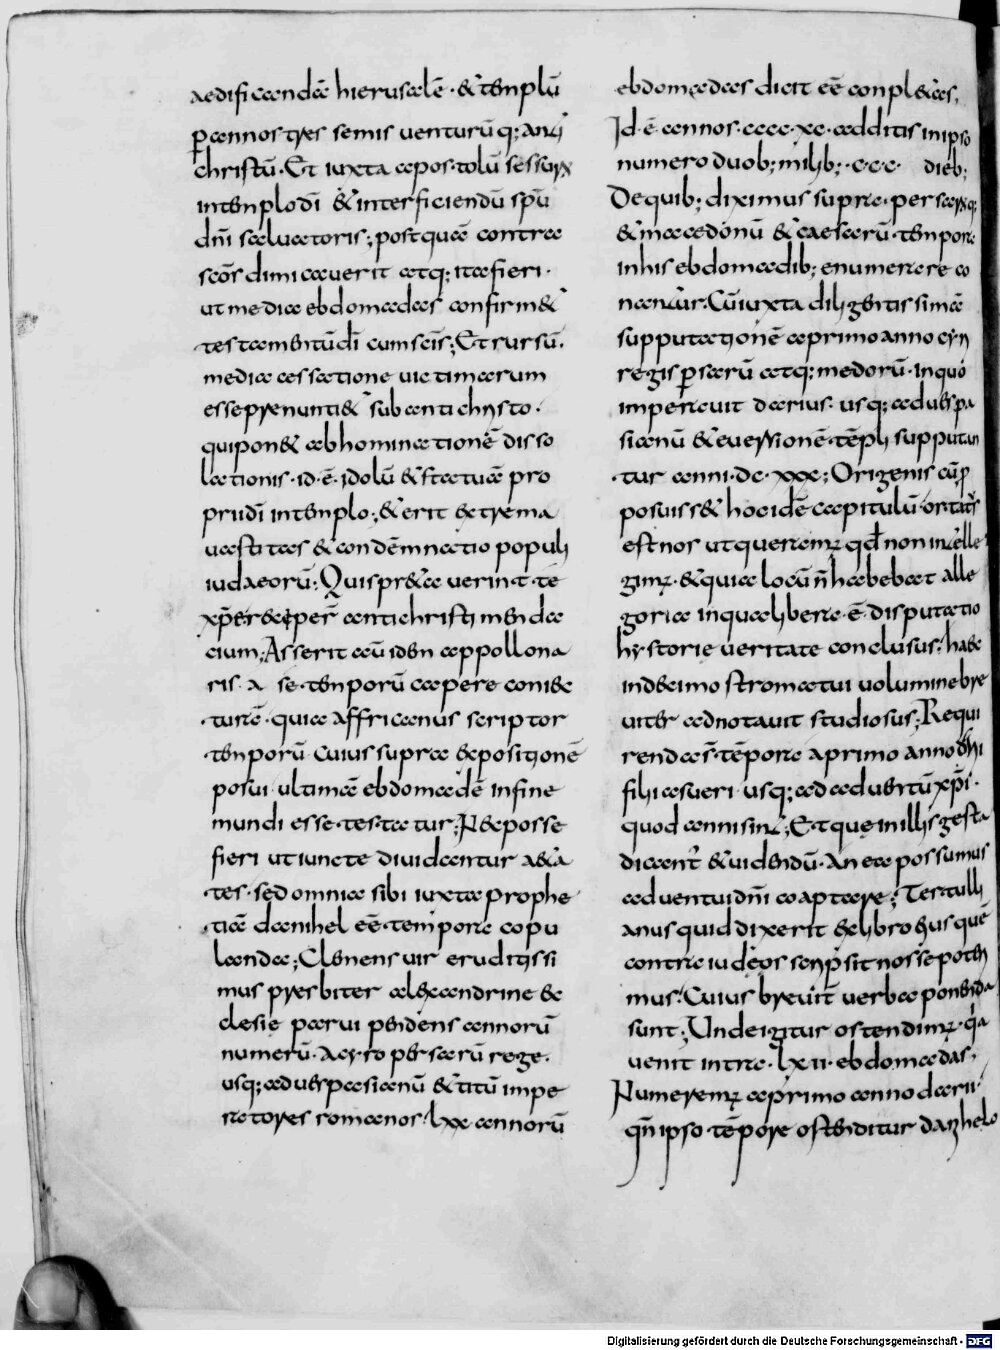 aedificandã hierusalẽ · & tẽnplũ
p annos tres semis venturũ q; anti
christũ · Et iuxta apostolũ sessurũ
in tenplo dĩ & interficiendũ spũ
dñi salvatoris; postquã contra
scõs dimicaverit atq; ita fieri ·
ut media ebdomadaes confirm&
testamentũ dĩ cum scĩs; Et rursũ
media cessatione victimarum
esse prenunti& sub antichristo ·
qui pon& abhominationẽ disso
lationis · id · ẽ · idolũ & statuã pro
prii dĩ in tenplo; & erit extrema
vastitas & condẽmnatio populi
iudaeorũ; Qui spr&a verit te
xp̃i recep̃ antichristi menda
cium; Asserit aũ iden appollona
ris · a se tenporũ capere coniec
turẽ · quia affricanus scriptor
tenporũ cuius supra expositionẽ
posui ultimã ebdomadẽ in fine
mundi esse testatur; Nec posse
fieri ut iuncte dividantur a&a
tes · sed omnia sibi iuxta prophe
tiã danihel eẽ tempora copu
landa; Clemens vir eruditissi
mus presbiter alexandrine ec
clesie parvi pendens annorũ
numerũ · A cyro persarũ rege ·
usq; ad vespasianũ & titũ impe
ratores romanos · lxx annorũ
ebdomadaes dicit eẽ conpl&as,
Id · ẽ · annos · cccc · xc · additis in ipso
numero duob; milib; · ccc · dieb;
De quib; diximus supra · persarũq;
& macedonũ & caesarũ · tenpora
in his ebdomadib; enumerare co
natur · Cũ iuxta diligentissimã
supputationẽ a primo anno cyri
regis p sarũ atq; medorũ · in quo
imperavit darius · usq; ad vespa
sianũ & eversionẽ tẽpli supputan
tur anni · dc · xxx; Origenis cũ p
posuiss& hoc idẽ capitulũ · ortatus
est nos ut queram qd non intelle
gim · & quia locũ ñ habebat alle
gorie in qua libera · ẽ · disputatio
hystorie veritate conclusus · haec
in decimo stromatui volumine bre
viter adnotavit studiosus; Requi
renda ẽ s tẽpora a primo anno darii
filii asueri usq; ad adventũ xp̃i ·
quod anni sint; Et que in illis gesta
dicant & videndũ · An ea possumus
adventui dñi coaptare; Tertulli
anus quid dixerit & libro huius quẽ
contra iudeos scripsit nosse poten
mus · Cuius brevit verba ponenda
sunt; Unde igitur ostendim · qa
venit intra · lx ii · ebdomadas ·
Numerem a primo anno darii ·
qñ ipso tẽpore ostenditur danihelo
Digitalisierung gefördert durch die Deutsche Forschungsgemeinschaft - DFG